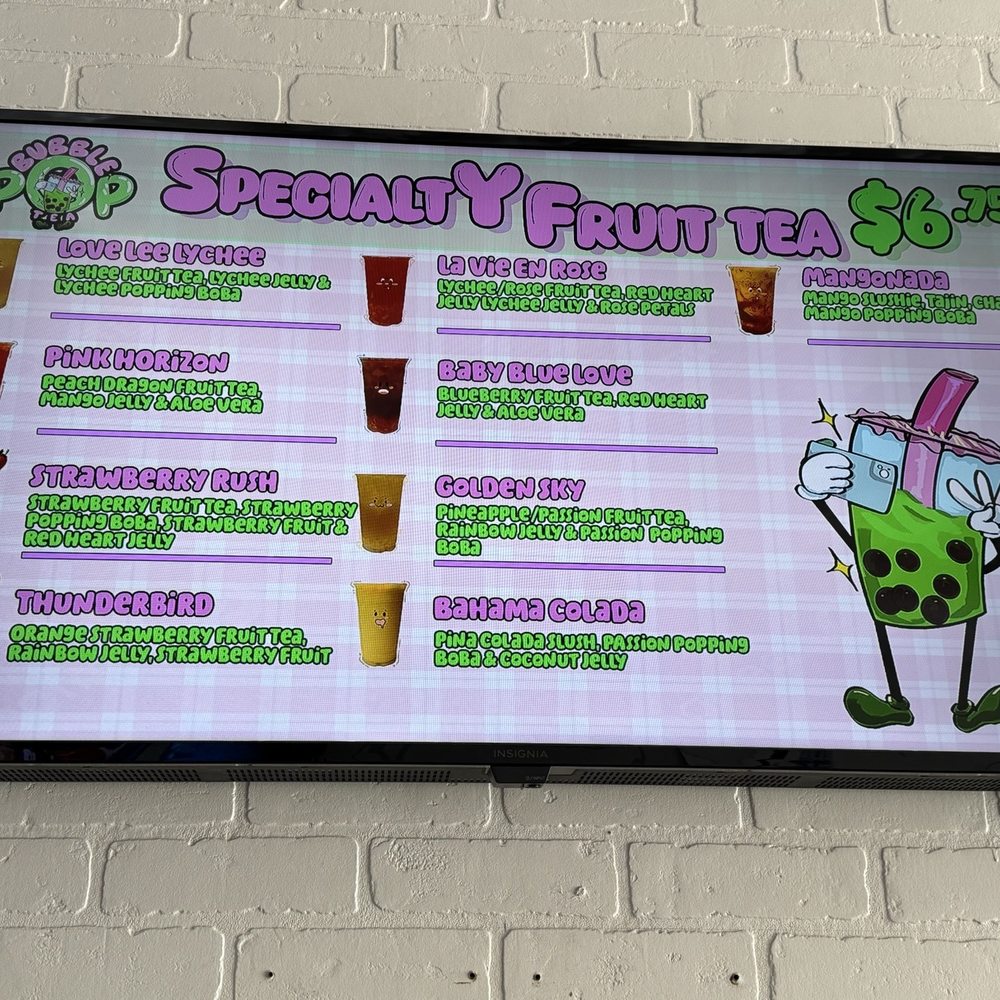 BUBBLE
POP
TEA
SPECIALTY FRUIT TEA
$6.75
LOVE LEE LYCHEE
LYCHEE FRUIT TEA, LYCHEE JELLY &
LYCHEE POPPING BOBA
PINK HORIZON
PEACH DRAGON FRUIT TEA,
MANGO JELLY & ALOE VERA
STRAWBERRY RUSH
STRAWBERRY FRUIT TEA, STRAWBERRY
POPPING BOBA, STRAWBERRY FRUIT &
RED HEART JELLY
THUNDERBIRD
ORANGE STRAWBERRY FRUIT TEA,
RAINBOW JELLY, STRAWBERRY FRUIT
LA VIE EN ROSE
LYCHEE/ROSE FRUIT TEA, RED HEART
JELLY LYCHEE JELLY & ROSE PETALS
BABY BLUE LOVE
BLUEBERRY FRUIT TEA, RED HEART
JELLY & ALOE VERA
GOLDEN SKY
PINEAPPLE/PASSION FRUIT TEA,
RAINBOW JELLY & PASSION POPPING
BOBA
BAHAMA COLADA
PINA COLADA SLUSH, PASSION POPPING
BOBA & COCONUT JELLY
MANGONADA
MANGO SLUSHIE, TAJIN,
MANGO POPPING BOBA
INSIGNIA